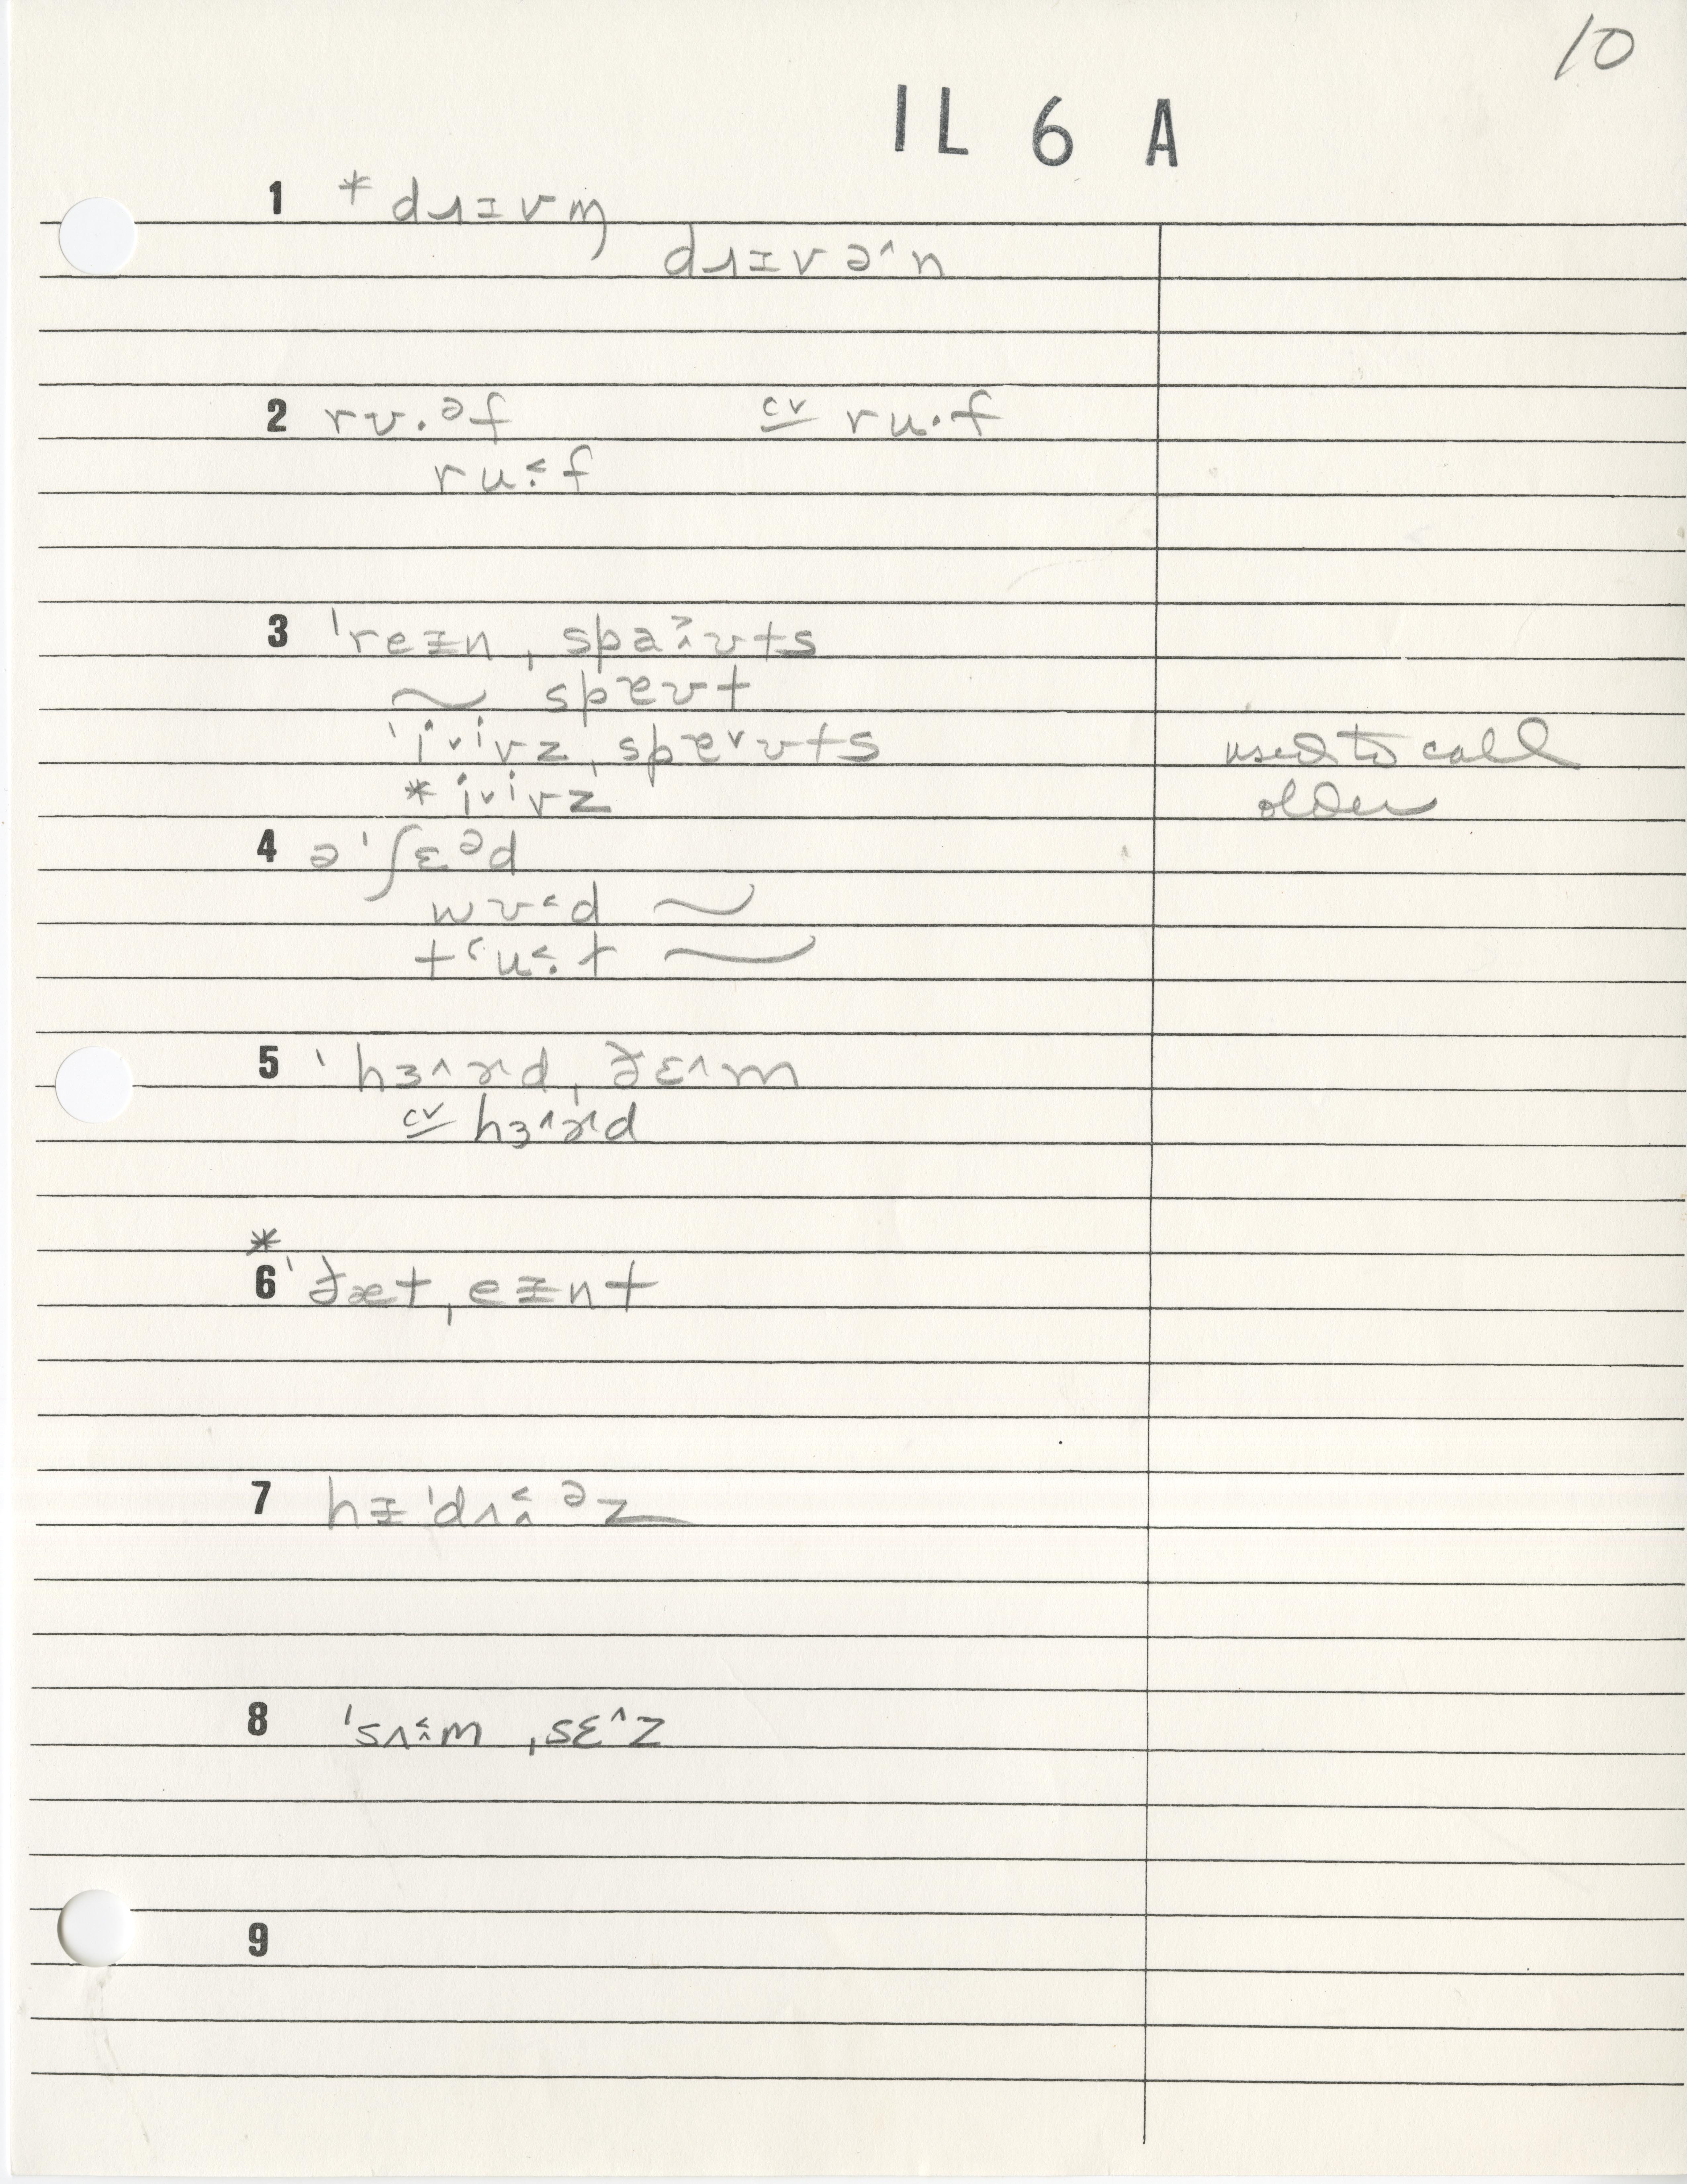 10
IL 6 A
1 * dɹɪvm̩
dɹɪvə^n
2 rʊ.ᵊf cv ru.f
ru:˂f
3 ˈreɪn ˌspaɪʊts
~ spæʊt
ˈiˇiˇvz ˌspæˇʊts used to call
* iˇiˇvz older
4 ə ˈʃɛᵊd
wʊ˂d ~
tʻu:˂t ~
5 ˈhɜ^ɚd ˌðɛ^m
cv hɜ^ɚd
*
6 ˈðæt ˌeɪnt
7 hɪ ˈdʌ:˂ᵊz
8 ˈsʌ:˂m ˌsɛ^z
9